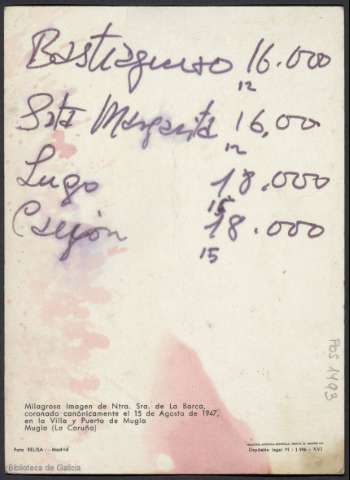 Bastiagueiro 16.000
12
Sta Margarita 16,00
12
Lugo 18.000
15
18.000
15
POS 1493
Milagrosa Imagen de Ntra. Sra. de La Barca,
coronada canónicamente el 15 de Agosto de 1947,
en la Villa y Puerto de Mugía
Mugía (La Coruña)
Foto: RELISA. - Madrid
Depósito legal M - 1.996 - XVI
Biblioteca de Galicia